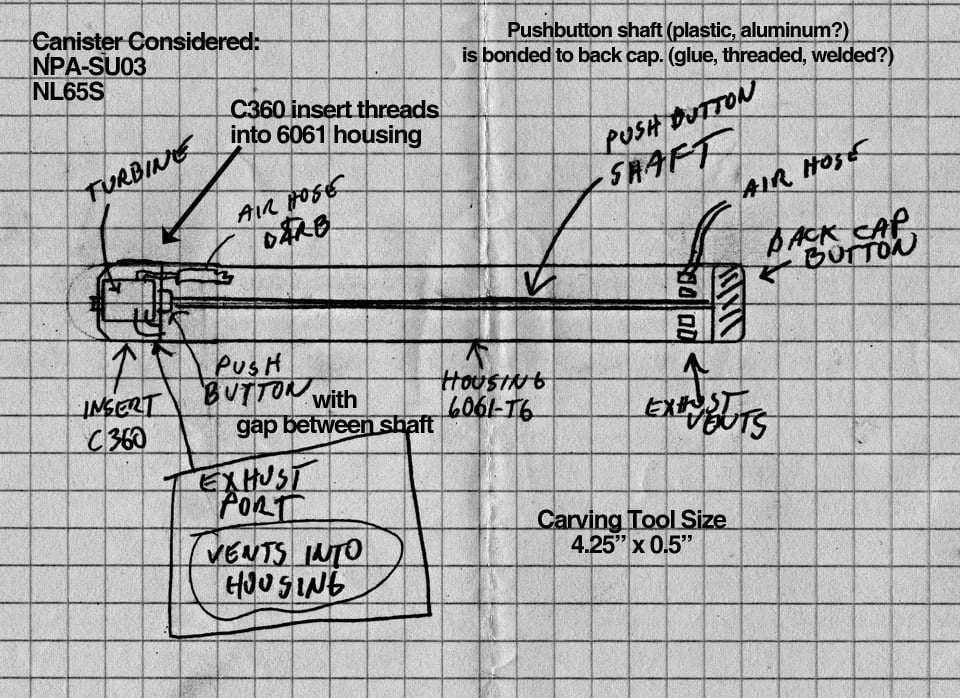 Canister Considered:
NPA-SU03
NL65S
Pushbutton shaft (plastic, aluminum?)
is bonded to back cap. (glue, threaded, welded?)
C360 insert threads
into 6061 housing
TURBINE
AIR HOSE
BARB
PUSH BUTTON
SHAFT
AIR HOSE
BACK CAP
BUTTON
INSERT
C360
PUSH
BUTTON
with
gap between shaft
HOUSING
6061-T6
EXHUST
VENTS
EXHUST
PORT
VENTS INTO
HOUSING
Carving Tool Size
4.25” x 0.5”